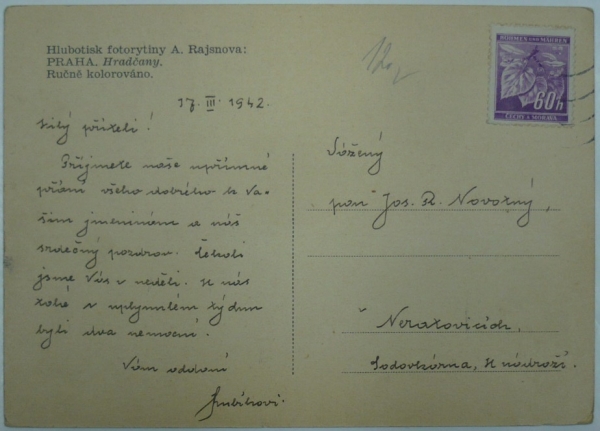 Hlubotisk fotorytiny A. Rajsnova:
PRAHA. Hradčany.
Ručně kolorováno.
17. III. 1942.
Milý příteli!
Přijměte naše upřímné
přání všeho dobrého k Va-
šim jmeninám a náš
srdečný pozdrav. Čekali
jsme Vás v neděli. U nás
také v uplynulém týdnu
byli dva nemocní.
Vám oddaní
Vážený
pan Jos. R. Novotný,
v Neratovicích,
Sodovkárna, u nádraží.
BÖHMEN UND MÄHREN
60h
ČECHY A MORAVA